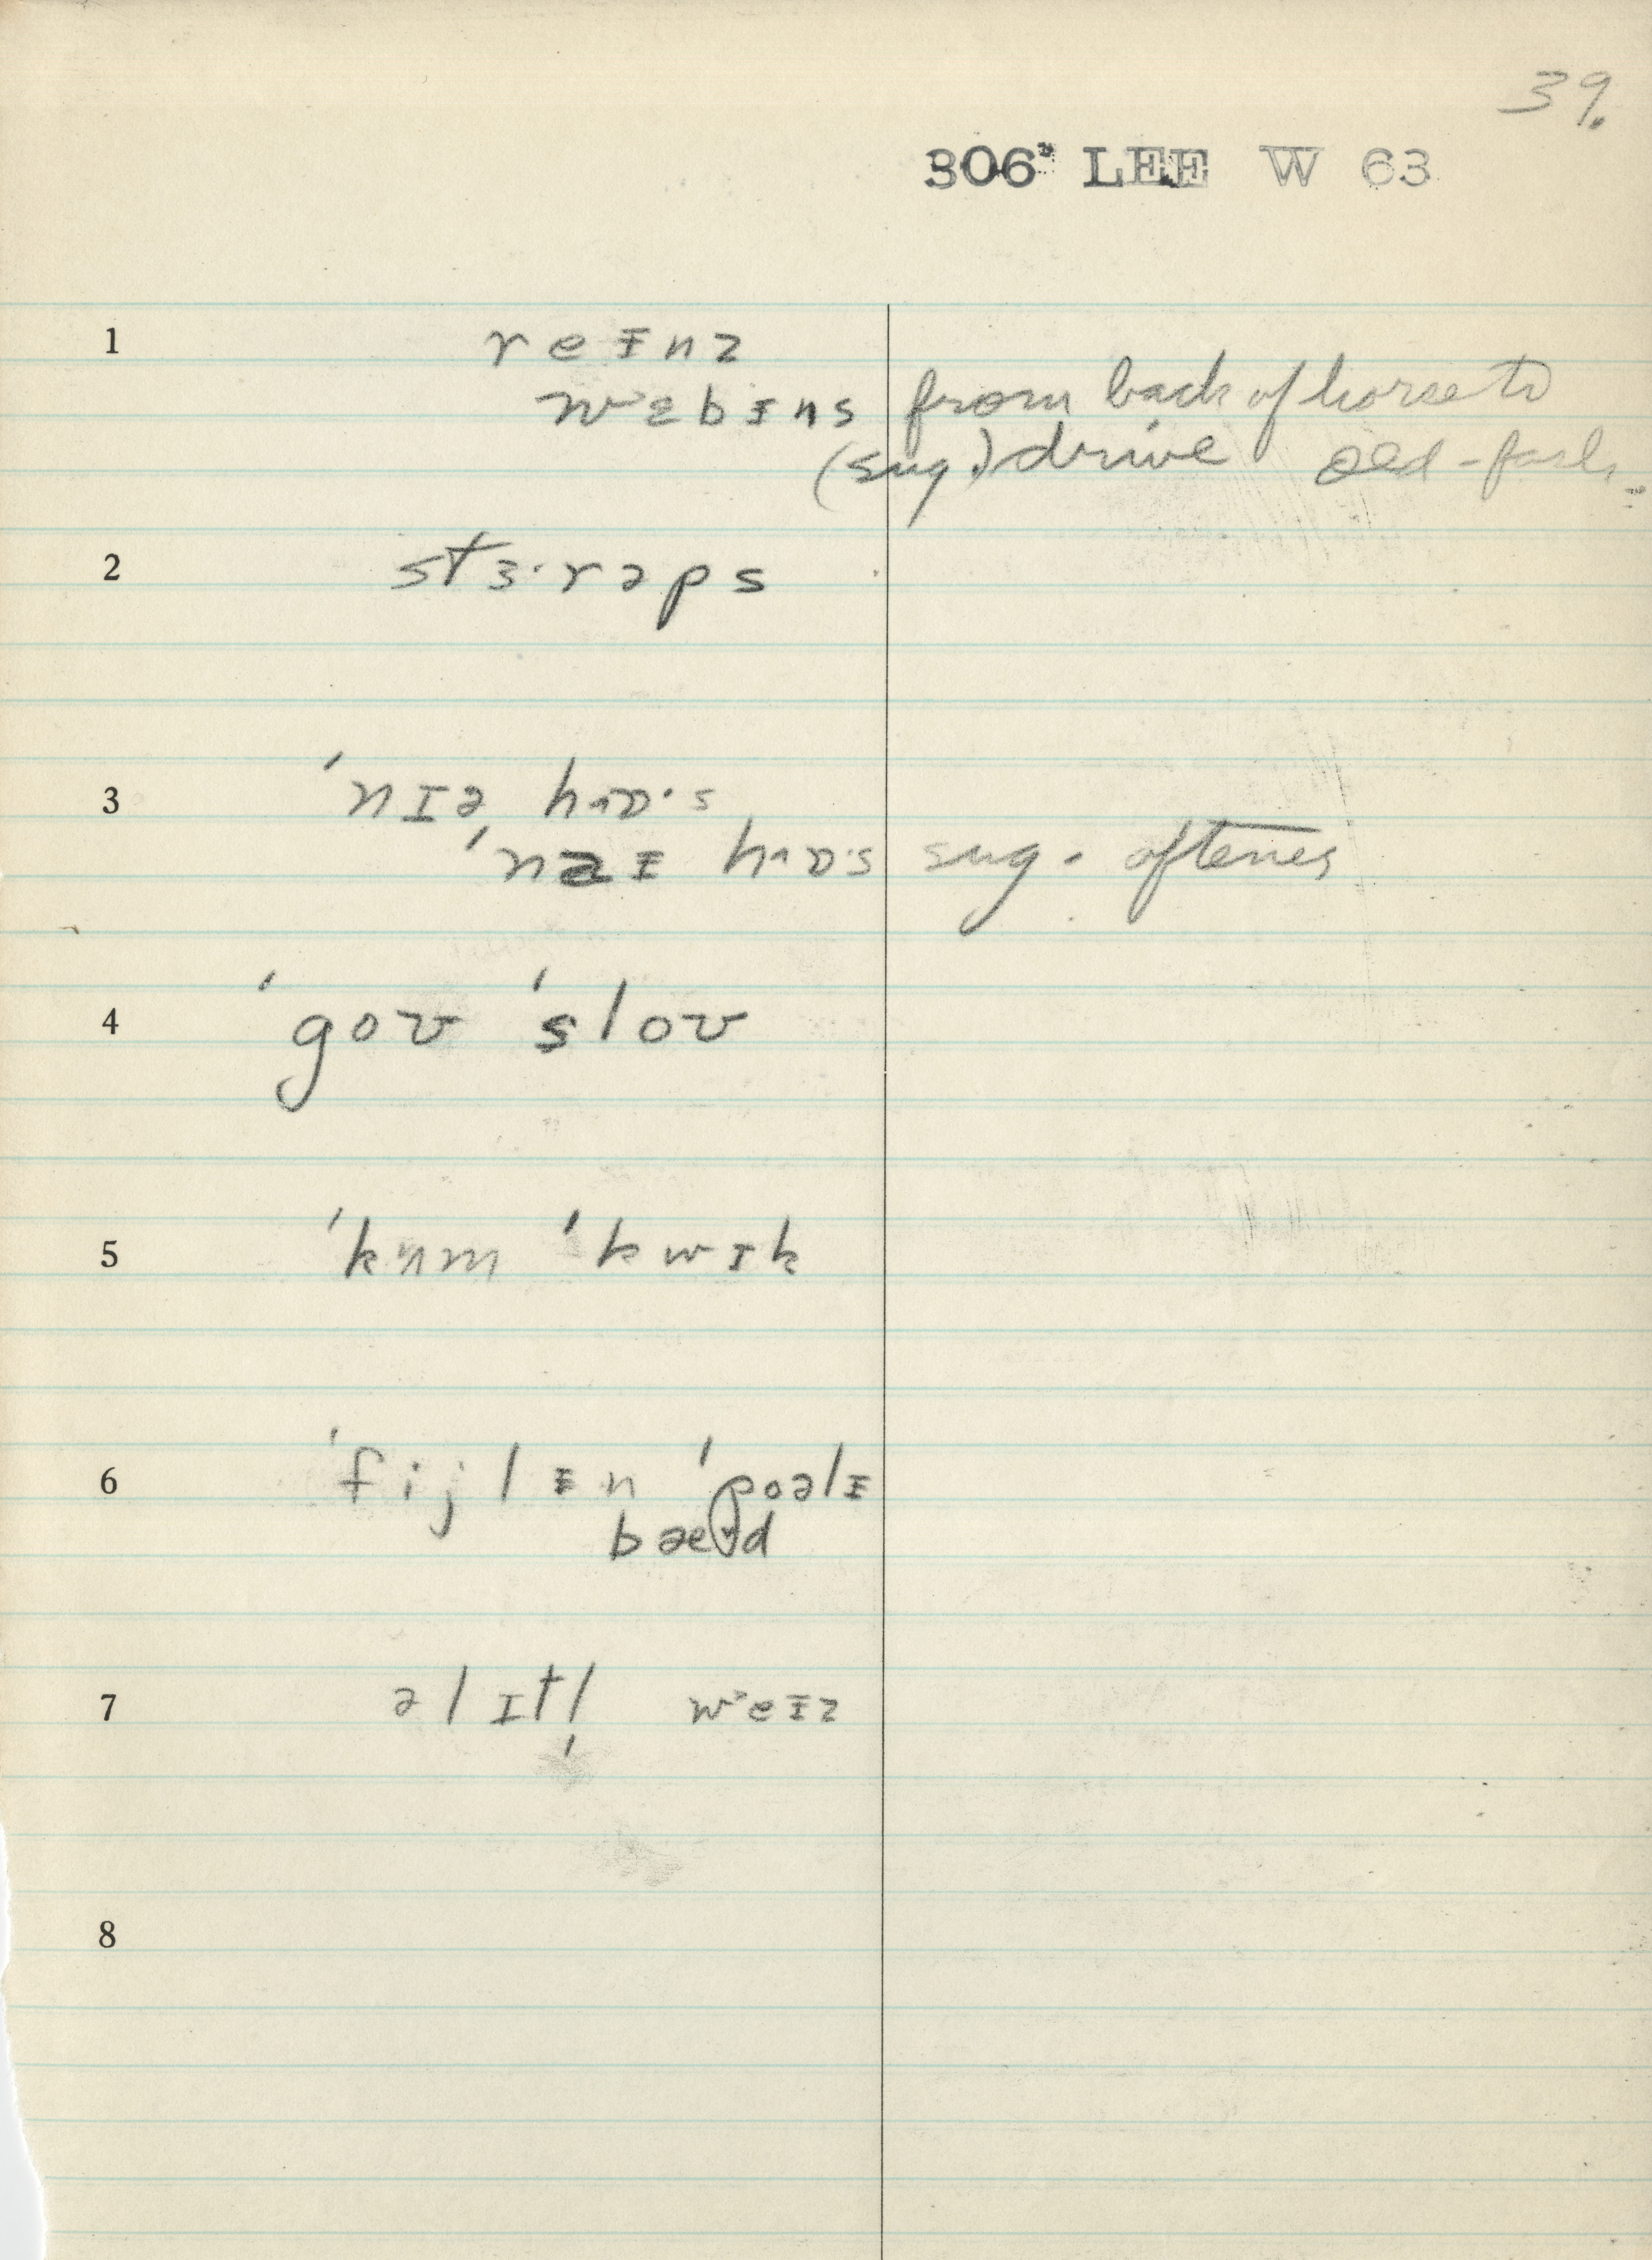 39.
306ᵃ LEE W 63
1 reɪnz
wɛbɪns from back of horse to
(sug.) drive old-fash.
2 stɜ·rəps
3 ˈnɪə, hɒ·s
ˈnaɪ hɒ·s sug. oftenes
4 ˈgoʊ ˈsloʊ
5 ˈkʌm ˈkwɪk
6 ˈfijlɪn ˈpoəlɪ
bæd
7 ə lɪtl̩ weɪz
8